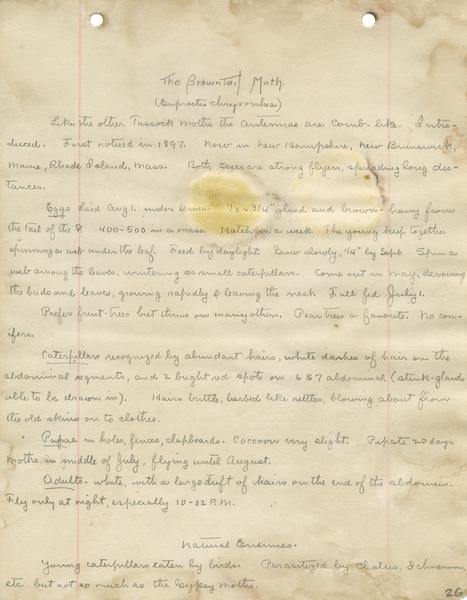 The BrownTail Moth.
(Euproctis chrysorrhea)
Like the other Tussock moths the Antennae are Comb-like. Intro-
duced. First noticed in 1897. Now in New Hampshire, New Brunswick,
Maine, Rhode Island, Mass. Both sexes are strong flyers, spreading long dis-
tances.
Eggs laid Aug 1. under leaves 1/2 x 3/4" glued and brown- hairy from
the tail of the ♀. 400-500 in a mass. Hatch in a week. The young keep together
spinning a web under the leaf. Feed by daylight. Grow slowly, 1/4" by Sept. Spin a
web among the leaves, wintering as small caterpillars. Come out in May, devouring
the buds and leaves, growing rapidly & leaving the nest. Full fed July 1.
Prefers fruit-trees but thrive on many others. Pear trees a favorite. No con-
ifers.
Caterpillars recognized by abundant hairs, white dashes of hair on the
abdominal segments, and 2 bright red spots on 6 & 7 abdominal (stink-glands
able to be drawn in). Hairs brittle, barbed like nettles, blowing about from
the old skins on to clothes.
Pupae in holes, fences, clapboards. Coccoon very slight. Pupate 20 days
Moths in middle of July, flying until August.
Adults- white, with a large tuft of hairs on the end of the abdomen.
Fly only at night, especially 10-12 P.M.
Natural Enemies.
Young caterpillars eaten by birds. Parasitized by Chalcis, Ichneumon,
etc. but not so much as the Gypsy Moths.
26